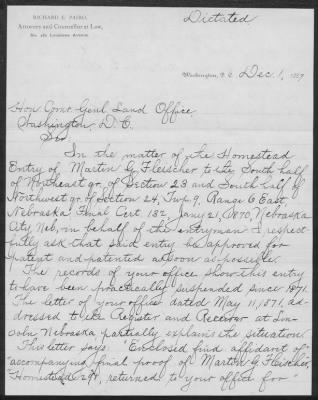 Dictated
RICHARD E. PAIRO,
Attorney and Counsellor at Law,
No. 482 Louisiana Avenue.
Washington, D.C. Dec. 1, 1889
Hon. Comr. Genl. Land Office,
Washington, D.C.
Sir
In the matter of the Homestead
Entry of Martin G. Fleischer to the South half
of Northeast qr. of Section 23 and South half of
Northwest qr. of Section 24, Twp. 9, Range 6 East,
Nebraska, Final Cert. 132, Jany 21, 1870, Nebraska
City, Neb, in behalf of the entryman I respect-
fully ask that said entry be approved for
patent and patented as soon as possible.
The records of your office show this entry
to have been practically suspended since 1871.
The letter of your office dated May 11, 1871, ad-
dressed to the Register and Receiver at Lin-
coln Nebraska partially explains the situation.
This letter says: "Enclosed find affidavit of"
"accompanying final proof of Martin G. Fleischer,
"Homestead 297, returned to your office for"